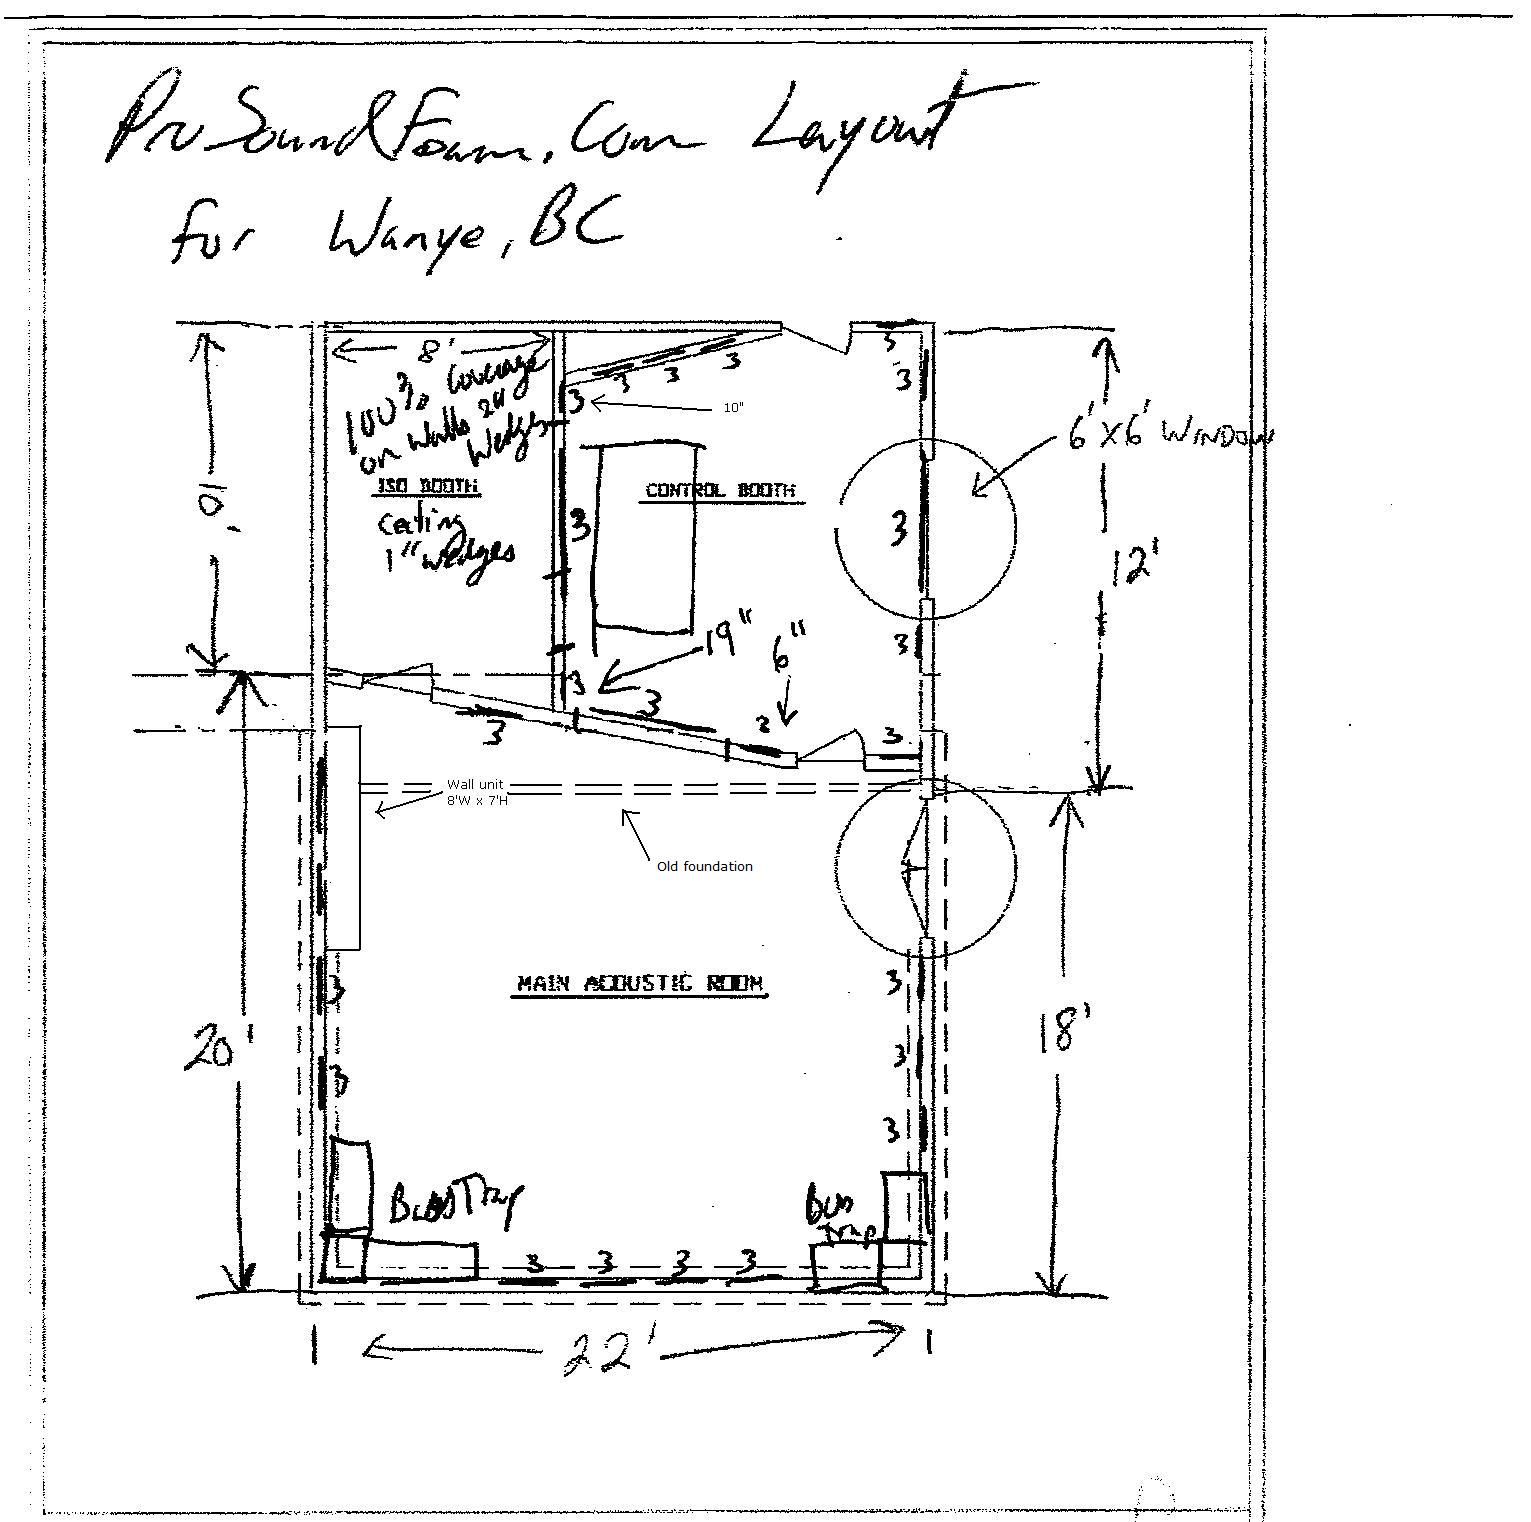 ProSoundFoam.Com Layout
for Wanye, BC
8'
100% Coverage
on Walls 2"
Wedges
ISO BOOTH
Ceiling
1" Wedges
10'
3
3
3
3
3
3
10"
6'x6' WINDOW
CONTROL BOOTH
3
3
12'
19"
6"
3
3
3
3
2
3
Wall unit
8'W x 7'H
Old foundation
MAIN ACOUSTIC ROOM
3
3
20'
18'
3
3
3
Bass Trap
Bass
Trap
3
3
3
3
22'